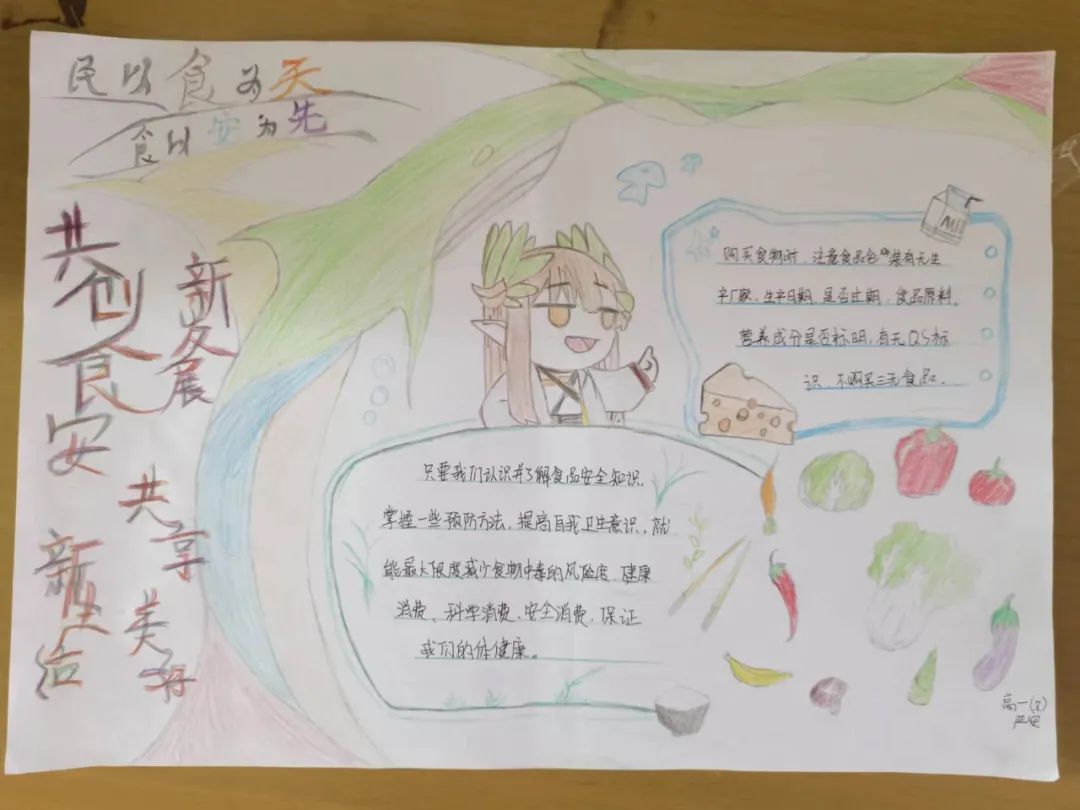 民以食为天
食以安为先
共创食安
新发展
共享美好
新生活
购买食物时，注意食品包装有无生
产厂家、生产日期，是否过期，食品原料、
营养成分是否标明，有无QS标
识，不购买三无食品。
MIL
只要我们认识并了解食品安全知识，
掌握一些预防方法，提高自我卫生意识，就
能最大限度减少食物中毒的风险度，健康
消费、科学消费、安全消费，保证
我们的体健康。
高一(8)
严安